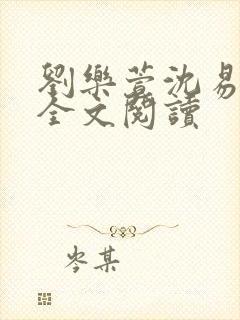 劉樂萱沈易
全文閱讀
岑某